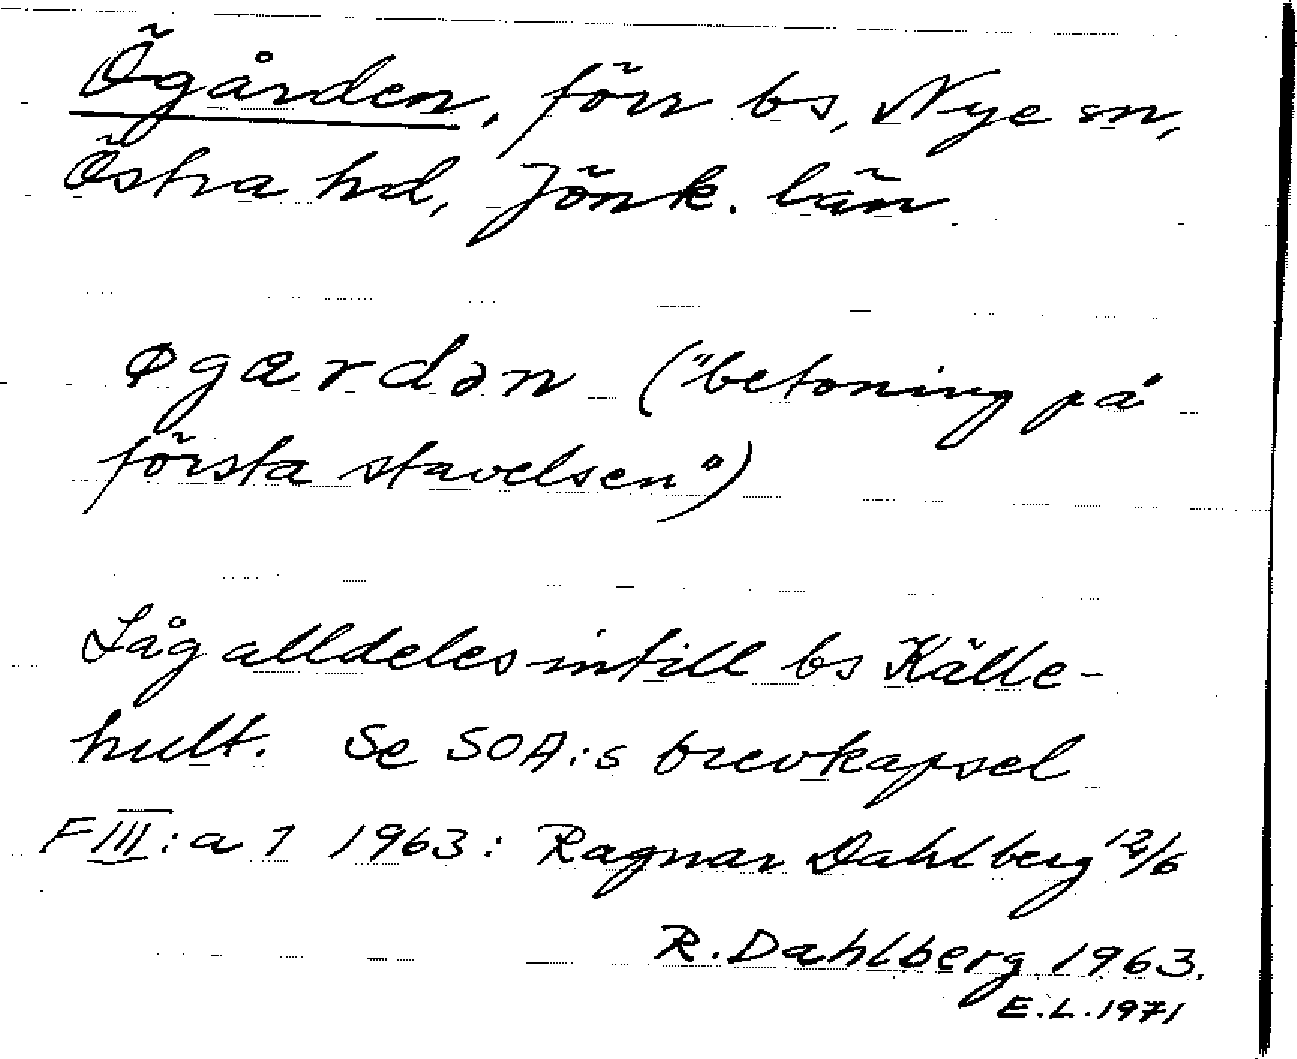 Ögården, förr bs, Nye sn,
Östra hd, Jönk. län.
øgardən ("betoning på
första stavelsen")
Låg alldeles intill bs Källe-
hult. Se SOA:s brevkapsel
F III:a 7 1963: Ragnar Dahlberg 12/6
R. Dahlberg 1963.
E.L. 1971